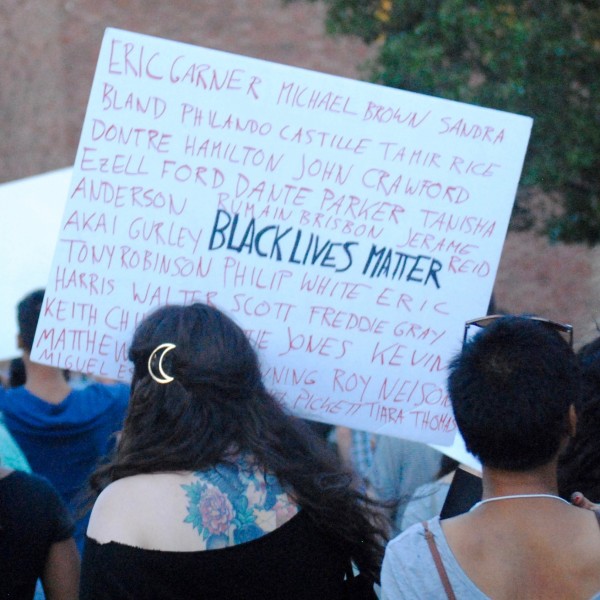 ERIC GARNER MICHAEL BROWN SANDRA
BLAND PHILANDO CASTILLE TAMIR RICE
DONTRE HAMILTON JOHN CRAWFORD
EZELL FORD DANTE PARKER TANISHA
ANDERSON RUMAIN BRISBON JERAME
AKAI GURLEY BLACK LIVES MATTER REID
TONY ROBINSON PHILIP WHITE ERIC
HARRIS WALTER SCOTT FREDDIE GRAY
KEITH JONES KEVIN
MATTHEW ROY NELSON
MIGUEL PICKETT TIARA THOMAS